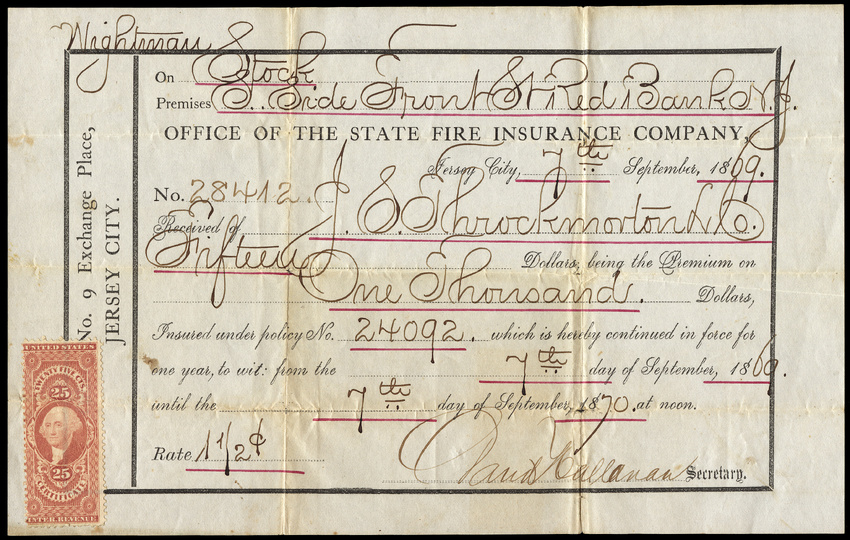 Wightman
On Stock
Premises S. Side Front St Red Bank N.J.
OFFICE OF THE STATE FIRE INSURANCE COMPANY,
Jersey City, 7th September, 1869.
No. 28412.
Received of J. S. Throckmorton & Co.
Fifteen Dollars, being the Premium on
One Thousand. Dollars,
Insured under policy No. 24092. which is hereby continued in force for
one year, to wit: from the 7th day of September, 1869.
until the 7th day of September, 1870. at noon.
Rate 1 1/2 ¢
David Callanan Secretary.
No. 9 Exchange Place,
JERSEY CITY.
UNITED STATES
TWENTY FIVE CTS.
25
25
CERTIFICATE
INTER. REVENUE